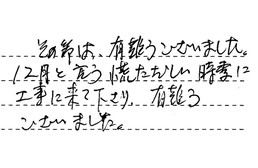 その節は、有難うございました。
12月と言う慌ただしい時季に
工事に来て下さり、有難う
ございました。